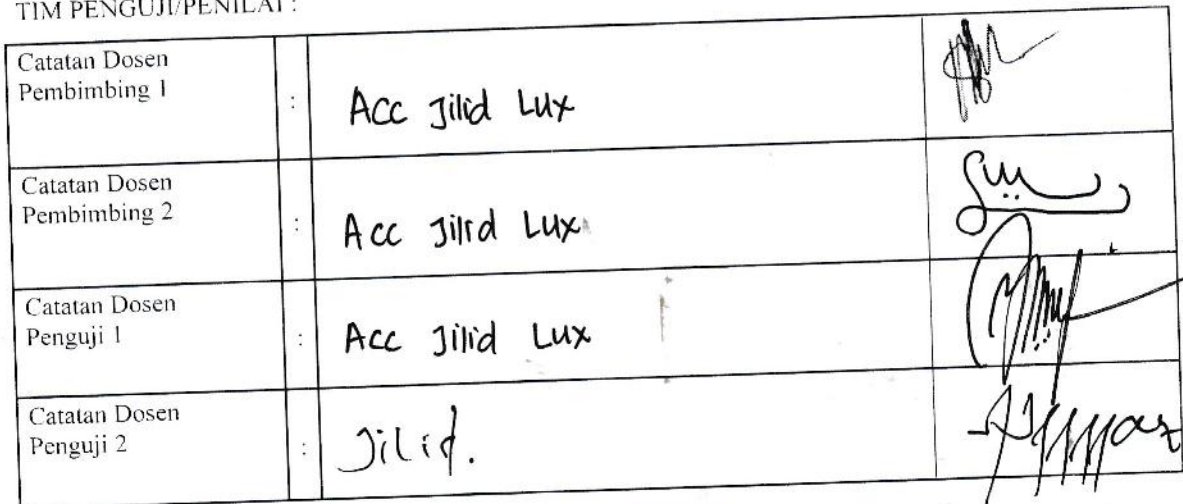 TIM PENGUJI/PENILAI :
Catatan Dosen
Pembimbing 1
:
Acc Jilid Lux
Catatan Dosen
Pembimbing 2
:
Acc Jilid Lux
Catatan Dosen
Penguji 1
:
Acc Jilid Lux
Catatan Dosen
Penguji 2
:
Jilid.